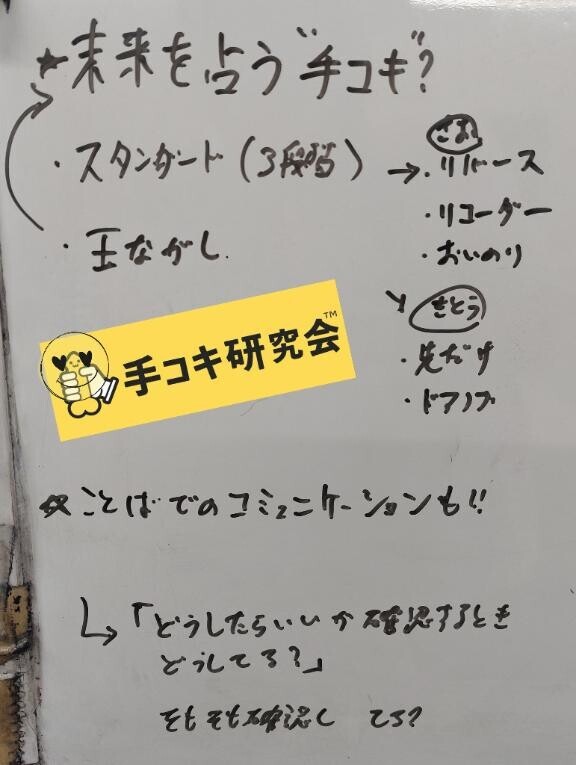 ★未来を占う"手コキ"?
・スタンダード(3段階)
→・リバース
・リコーダー
・おいのり
・玉ながし.
きとう
・先だけ
・ドアノブ
手コキ研究会™
☆ことばでのコミュニケーションも!!
↳「どうしたらいいか確認するとき
どうしてる?」
そもそも確認してる?